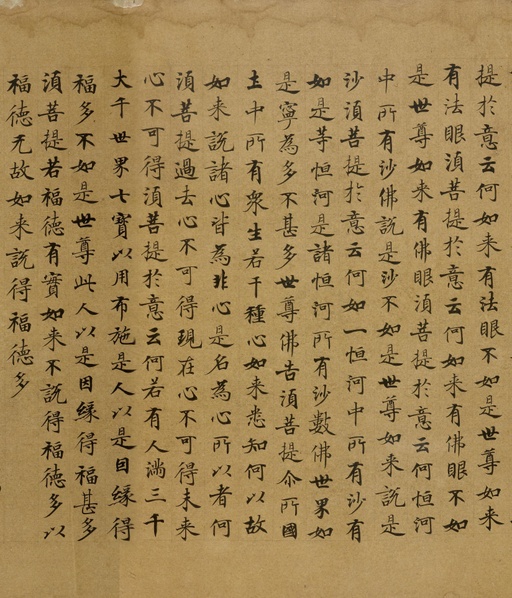 提於意云何如来有法眼不如是世尊如来
有法眼湏菩提於意云何如来有佛眼不如
是世尊如来有佛眼湏菩提於意云何恒河
中所有沙佛說是沙不如是世尊如来說是
沙湏菩提於意云何如一恒河中所有沙有
如是等恒河是諸恒河所有沙數佛世界如
是寧為多不甚多世尊佛告湏菩提尒所國
土中所有衆生若干種心如来悉知何以故
如来說諸心皆為非心是名為心所以者何
湏菩提過去心不可得現在心不可得未来
心不可得湏菩提於意云何若有人滿三千
大千世界七寶以用布施是人以是因縁得
福多不如是世尊此人以是因縁得福甚多
湏菩提若福德有實如来不說得福德多以
福德无故如来說得福德多